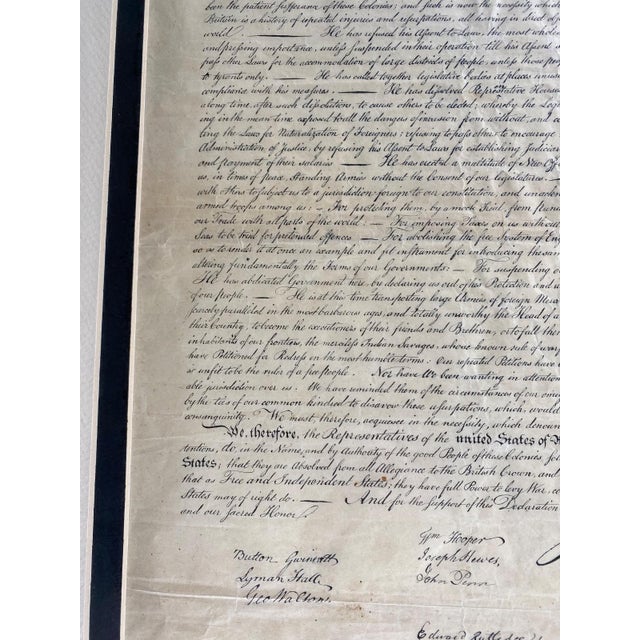 been the patient sufferance of these Colonies; and such is now the necessity which
Britain is a history of repeated injuries and usurpations, all having in direct
world. — He has refused his Assent to Laws, the most whole
and pressing importance, unless suspended in their operation till his Assent
pass other Laws for the accommodation of large districts of people, unless those
to tyrants only. — He has called together legislative bodies at places unus
compliance with his measures. — He has dissolved Representative Houses
along time, after such dissolutions, to cause others to be elected; whereby the Legis
ing in the mean time exposed to all the dangers of invasion from without, and
ting the Laws for Naturalization of Foreigners; refusing to pass others to encourage
Administration of Justice, by refusing his Assent to Laws for establishing Judiciar
and payment of their salaries — He has erected a multitude of New Off
us, in times of peace, Standing Armies without the Consent of our legislatures. —
with others to subject us to a jurisdiction foreign to our constitution, and unackno
armed troops among us: — For protecting them, by a mock Trial, from
our Trade with all parts of the world: — For imposing Taxes on us without
Seas to be tried for pretended offences — For abolishing the free System of Eng
so as to render it at once an example and fit instrument for introducing the same
altering fundamentally the Forms of our Governments: — For suspending
He has abdicated Government here, by declaring us out of his Protection and
of our people. — He is at this time transporting large Armies of foreign Merc
scarcely paralleled in the most barbarous ages, and totally unworthy the Head of a
their Country, to become the executioners of their friends and Brethren, or to fall them
inhabitants of our frontiers, the merciless Indian Savages, whose known rule of warf
have Petitioned for Redress in the most humble terms: Our repeated Petitions have
is unfit to be the ruler of a free people. Nor have We been wanting in attention
able jurisdiction over us. We have reminded them of the circumstances of our
by the ties of our common kindred to disavow these usurpations, which, would
consanguinity. We must, therefore, acquiesce in the necessity, which denoun
We, therefore, the Representatives of the united States of
tentions, do, in the Name, and by Authority of the good People of these Colonies,
States; that they are Absolved from all Allegiance to the British Crown, and
that as Free and Independent States, they have full Power to levy War,
States may of right do. — And for the support of this Declaration
and our sacred Honor.
Wm Hooper
Button Gwinnett Joseph Hewes,
Lyman Hall John Penn
Geo Walton.
Edward Rutledge